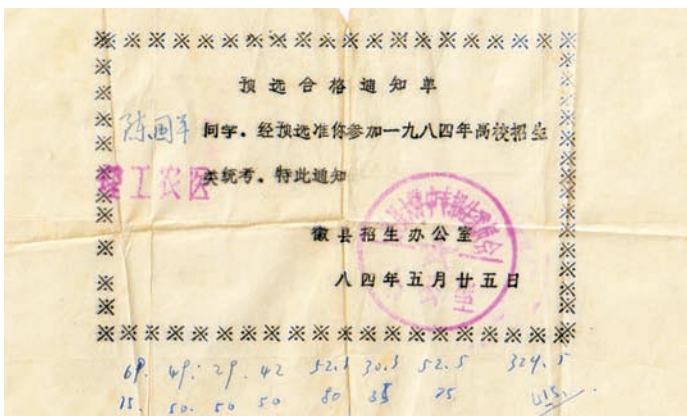 预选合格通知单
陈国军 同学。经预选准你参加一九八四年高校招生
理工农医 类统考。特此通知
徽县招生办公室
八四年五月廿五日
69. 49. 29. 42 52.5 30.5 52.5 324.5
75. 50. 50 50 80 35 75 415.